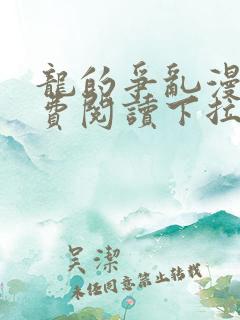 龍的爭亂漫
費閱讀下拉
吳潔
未经同意禁止转载